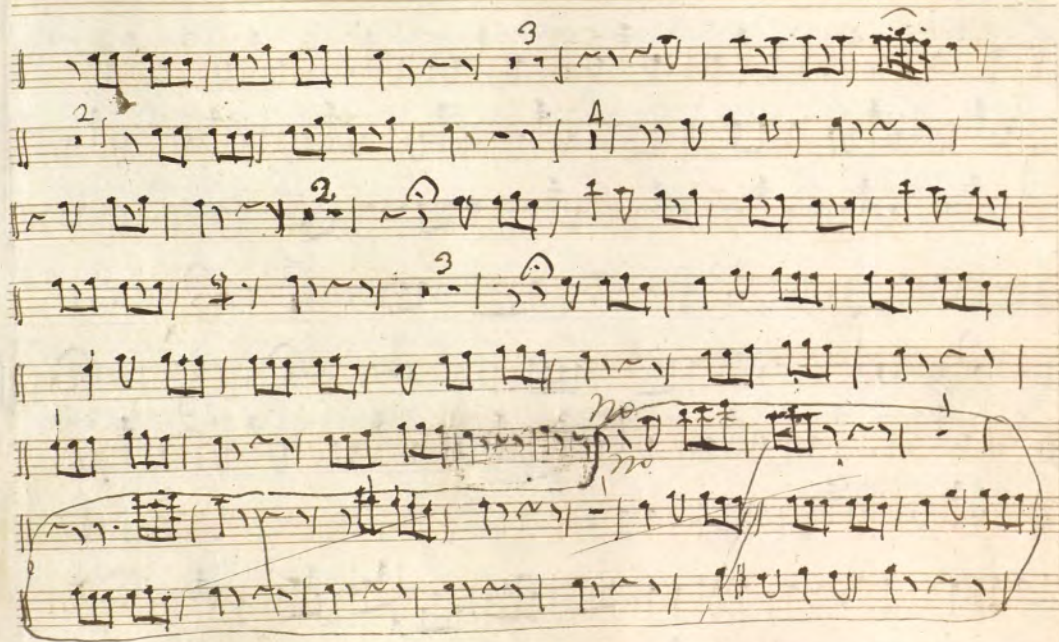 3
2 4
2
3
no
no